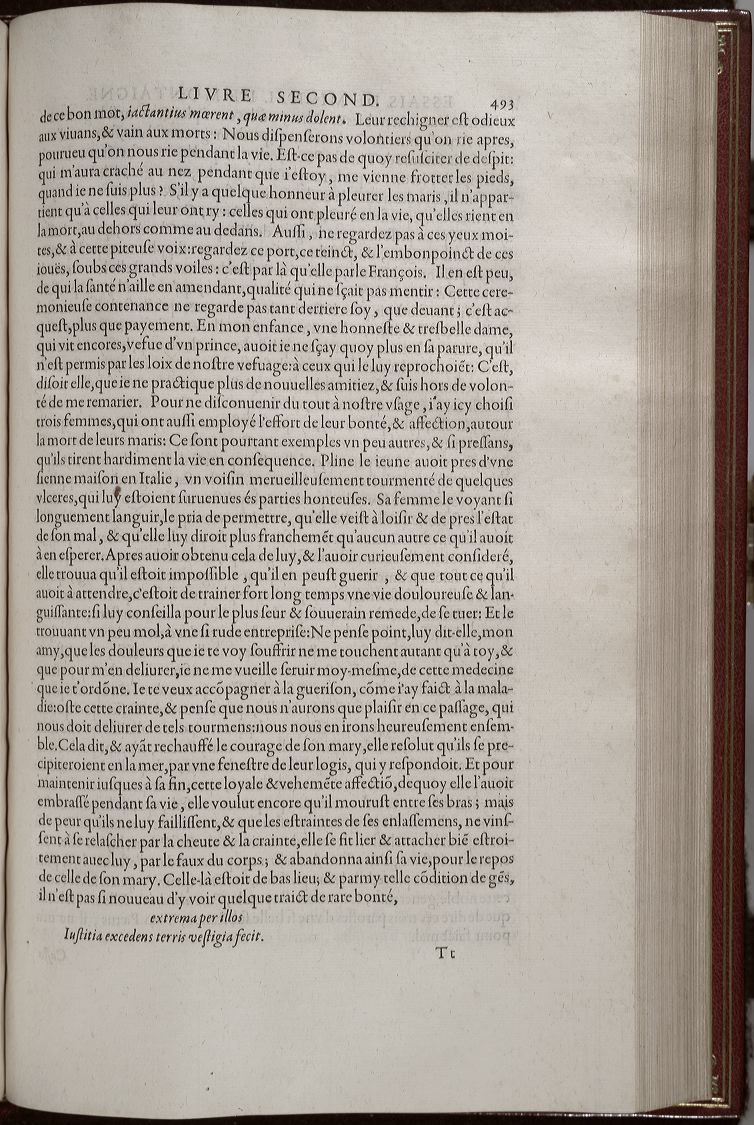 LIVRE SECOND. 493
de ce bon mot, iactantius mœrent, quæ minus dolent. Leur rechigner eſt odieux
aux viuans,& vain aux morts: Nous diſpenſerons volontiers qu'on rie apres,
pourueu qu'on nous rie pendant la vie. Eſt-ce pas de quoy reſuſciter de deſpit:
qui m'aura craché au nez pendant que i'eſtoy, me vienne frotter les pieds,
quand ie ne ſuis plus? S'il y a quelque honneur à pleurer les maris, il n'appar-
tient qu'à celles qui leur ont ry: celles qui ont pleuré en la vie, qu'elles rient en
la mort, au dehors comme au dedans. Auſſi, ne regardez pas à ces yeux moi-
tes,& à cette piteuſe voix: regardez ce port, ce teinct, & l'embonpoinct de ces
iouës, ſoubs ces grands voiles: c'eſt par là qu'elle parle François. Il en eſt peu,
de qui la ſanté n'aille en amendant, qualité qui ne ſçait pas mentir: Cette cere-
monieuſe contenance ne regarde pas tant derriere ſoy, que deuant; c'eſt ac-
queſt, plus que payement. En mon enfance, vne honneſte & treſbelle dame,
qui vit encores, vefue d'vn prince, auoit ie ne ſçay quoy plus en ſa parure, qu'il
n'eſt permis par les loix de noſtre vefuage: à ceux qui le luy reprochoiẽt: C'eſt,
diſoit elle, que ie ne practique plus de nouuelles amitiez, & ſuis hors de volon-
té de me remarier. Pour ne diſconuenir du tout à noſtre vſage, i'ay icy choiſi
trois femmes, qui ont auſſi employé l'effort de leur bonté, & affection, autour
la mort de leurs maris: Ce ſont pourtant exemples vn peu autres, & ſi preſſans,
qu'ils tirent hardiment la vie en conſequence. Pline le ieune auoit pres d'vne
ſienne maiſon en Italie, vn voiſin merueilleuſement tourmenté de quelques
vlceres, qui luy eſtoient ſuruenues és parties honteuſes. Sa femme le voyant ſi
longuement languir, le pria de permettre, qu'elle veiſt à loiſir & de pres l'eſtat
de ſon mal, & qu'elle luy diroit plus franchemẽt qu'aucun autre ce qu'il auoit
à en eſperer. Apres auoir obtenu cela de luy, & l'auoir curieuſement conſideré,
elle trouua qu'il eſtoit impoſſible, qu'il en peuſt guerir, & que tout ce qu'il
auoit à attendre, c'eſtoit de trainer fort long temps vne vie douloureuſe & lan-
guiſſante: ſi luy conſeilla pour le plus ſeur & ſouuerain remede, de ſe tuer: Et le
trouuant vn peu mol, à vne ſi rude entrepriſe: Ne penſe point, luy dit-elle, mon
amy, que les douleurs que ie te voy ſouffrir ne me touchent autant qu'à toy, &
que pour m'en deliurer, ie ne me vueille ſeruir moy-meſme, de cette medecine
que ie t'ordõne. Ie te veux accõpagner à la gueriſon, cõme i'ay faict à la mala-
die: oſte cette crainte, & penſe que nous n'aurons que plaiſir en ce paſſage, qui
nous doit deliurer de tels tourmens: nous nous en irons heureuſement enſem-
ble. Cela dit, & ayãt rechauffé le courage de ſon mary, elle reſolut qu'ils ſe pre-
cipiteroient en la mer, par vne feneſtre de leur logis, qui y reſpondoit. Et pour
maintenir iuſques à ſa fin, cette loyale & vehemẽte affectiõ, dequoy elle l'auoit
embraſſé pendant ſa vie, elle voulut encore qu'il mouruſt entre ſes bras; mais
de peur qu'ils ne luy failliſſent, & que les eſtraintes de ſes enlaſſemens, ne vinſ-
ſent à ſe relaſcher par la cheute & la crainte, elle ſe fit lier & attacher biẽ eſtroi-
tement auec luy, par le faux du corps; & abandonna ainſi ſa vie, pour le repos
de celle de ſon mary. Celle-là eſtoit de bas lieu; & parmy telle cõdition de gẽs,
il n'eſt pas ſi nouueau d'y voir quelque traict de rare bonté,
extrema per illos
Iuſtitia excedens terris veſtigia fecit.
Tt